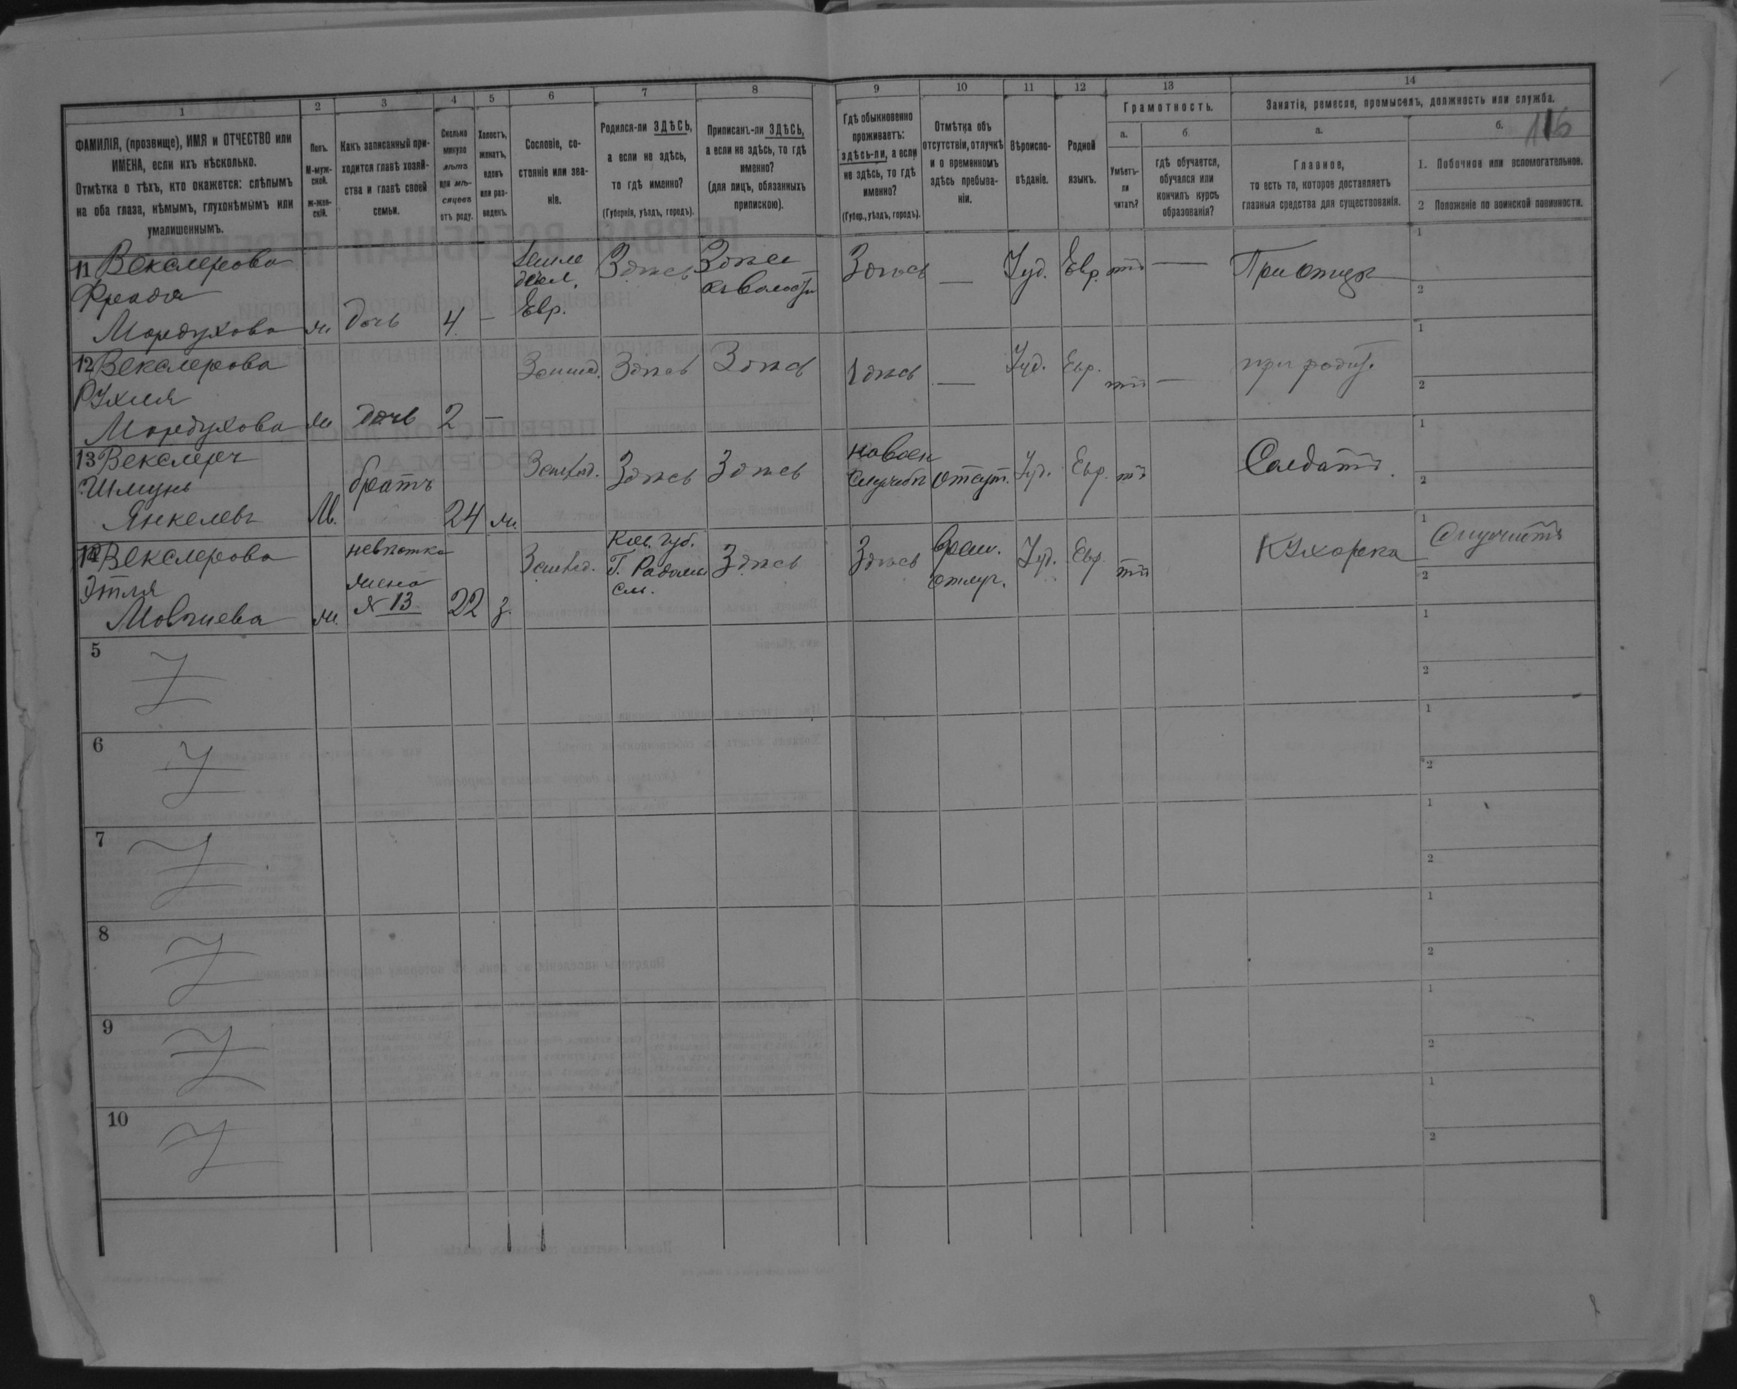 1 2 3 4 5 6 7 8 9 10 11 12 13 14
ФАМИЛІЯ, (прозвище), ИМЯ и ОТЧЕСТВО или
ИМЕНА, если ихъ нѣсколько.
Отмѣтка о тѣхъ, кто окажется: слѣпымъ
на оба глаза, нѣмымъ, глухонѣмымъ или
умалишеннымъ.
Полъ.
М-муж-
ской.
ж-жен-
скій.
Какъ записанный при-
ходится главѣ хозяй-
ства и главѣ своей
семьи.
Сколько
минуло
лѣтъ
или мѣ-
сяцевъ
отъ роду.
Холостъ,
женатъ,
вдовъ
или раз-
веденъ.
Сословіе, со-
стояніе или зва-
ніе.
Родился-ли ЗДѢСЬ,
а если не здѣсь,
то гдѣ именно?
(Губернія, уѣздъ, городъ).
Приписанъ-ли ЗДѢСЬ,
а если не здѣсь, то гдѣ
именно?
(для лицъ, обязанныхъ
припискою).
Гдѣ обыкновенно
проживаетъ:
здѣсь-ли, а если
не здѣсь, то гдѣ
именно?
(Губер., уѣздъ, городъ).
Отмѣтка объ
отсутствіи, отлучкѣ
и о временномъ
здѣсь пребыва-
ніи.
Вѣроиспо-
вѣданіе.
Родной
языкъ.
Грамотность.
а.
Умѣетъ-
ли
читать?
б.
гдѣ обучается,
обучался или
кончилъ курсъ
образованія?
Занятія, ремесло, промыселъ, должность или служба.
116
а.
Главное,
то есть то, которое доставляетъ
главныя средства для существованія.
б.
1. Побочное или вспомогательное.
2 Положеніе по воинской повинности.
11 Векслерова
Фрейда
Мордухова ж. дочь 4 —
земле
дѣл.
Евр.
Здѣсь Здѣсь
Здѣсь — Іуд. Евр. нѣтъ — При отцѣ
1
2
12 Векслерова
Рухля
Мордухова ж дочь 2 —
Здѣсь Здѣсь Здѣсь — Іуд. Евр. нѣтъ — при родит.
1
2
13 Векслеръ
Шмунь
Янкелевъ М. братъ 24 ж.
Здѣсь Здѣсь
на воен
службѣ отсут. Іуд. Евр. нѣтъ Солдатъ.
1
2
14 Векслерова
Этля
Мовшева ж.
невѣстка
жена
№ 13 22 з.
Кіев. губ.
Здѣсь Здѣсь
врем.
отлуч. Іуд. Евр нѣтъ Кухарка
1 Служитъ
2
5
1
2
6
1
2
7
1
2
8
1
2
9
1
2
10
1
2